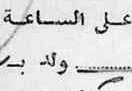 على الساعة
ولد بـ